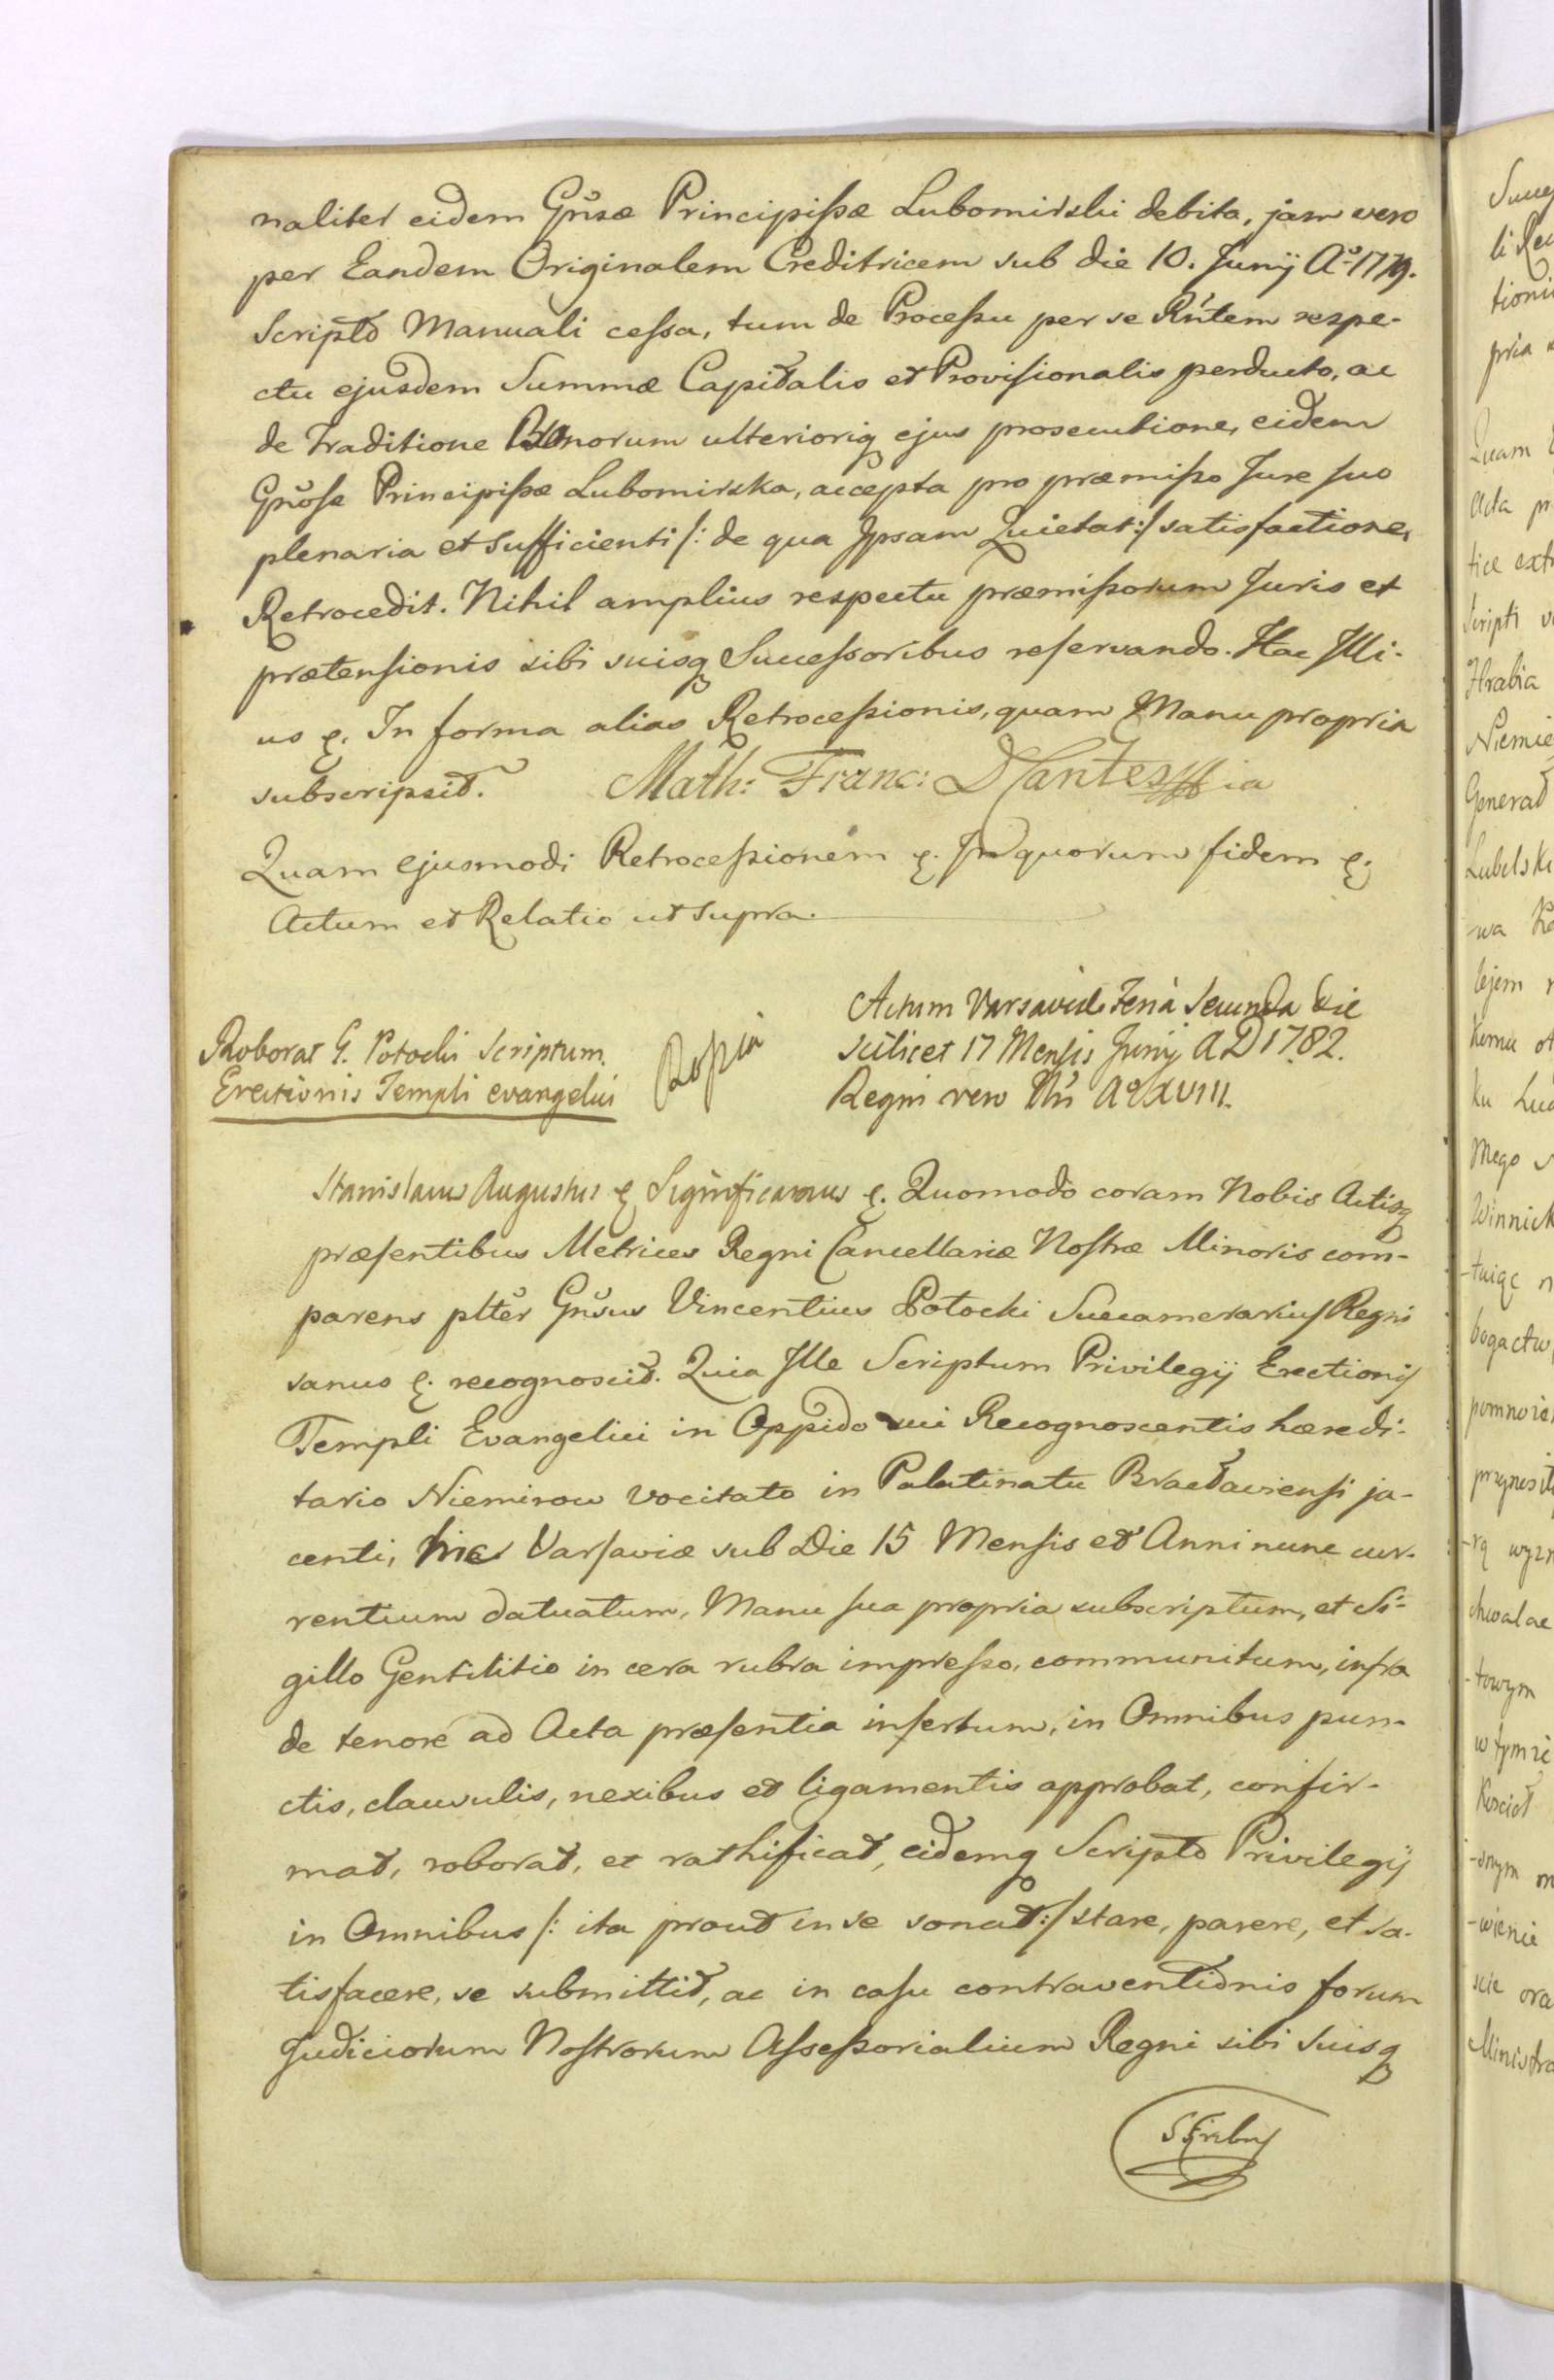 naliter eidem Gn̄sæ Principissæ Lubomirski debita, jam vero
per Eandem Originalem Creditricem sub die 10. Junÿ Aº 1779.
Scripto Manuali cessa, tum de Processu per se Rn̄tem respe-
ctu ejusdem Summæ Capitalis et Provisionalis perducto, ac
de Traditione Bonorum ulterioriq ejus prosecutione, eidem
Gn̄osæ Principissæ Lubomirska, accepta pro præmisso Jure suo
plenaria et sufficienti /: de qua Ipsam Quietat :/ satisfactione,
Retrocedit. Nihil amplius respectu præmissorum Juris et
prætensionis sibi suisq Successoribus reservando. Hac Illi-
us &. In forma alias Retrocessionis, quam Manu propria
subscripsit. Math: Franc: D Cantes
Quam ejusmodi Retrocessionem &. In quorum fidem &.
Actum et Relatio ut supra.
Actum Varsaviæ Feria Secunda die
scilicet 17 Mensis Junÿ A D 1782.
Regni vero Nr̄i Aº XVIII.
Roborat G. Potocki Scriptum
Erectionis Templi evangelici
Stanislaus Augustus & Significamus &. Quomodo coram Nobis Actisq
præsentibus Metrices Regni Cancellariæ Nostræ Minoris com-
parens pltēr Gn̄sus Vincentius Potocki Succamerarius Regni
sanus &. recognoscit. Quia Ille Scriptum Privilegÿ Erectionis
Templi Evangelici in Oppido sui Recognoscentis hæredi-
tario Niemirow vocitato in Palatinatu Bractaviensi ja-
centi, hic Varsaviæ sub Die 15 Mensis et Anni nunc cur-
rentium datuatum, Manu sua propria subscriptum, et Si-
gillo Gentilitio in cera rubra impresso, communitum, infra
de tenore ad Acta præsentia insertum, in Omnibus pun-
ctis, clausulis, nexibus et ligamentis approbat, confir-
mat, roborat, et rathificat, eidemq Scripto Privilegÿ
in Omnibus /: ita prout in se sonat :/ stare, parere, et sa-
tisfacere, se submittit, ac in casu contraventionis forum
Judiciorum Nostrorum Assessorialium Regni sibi suisq